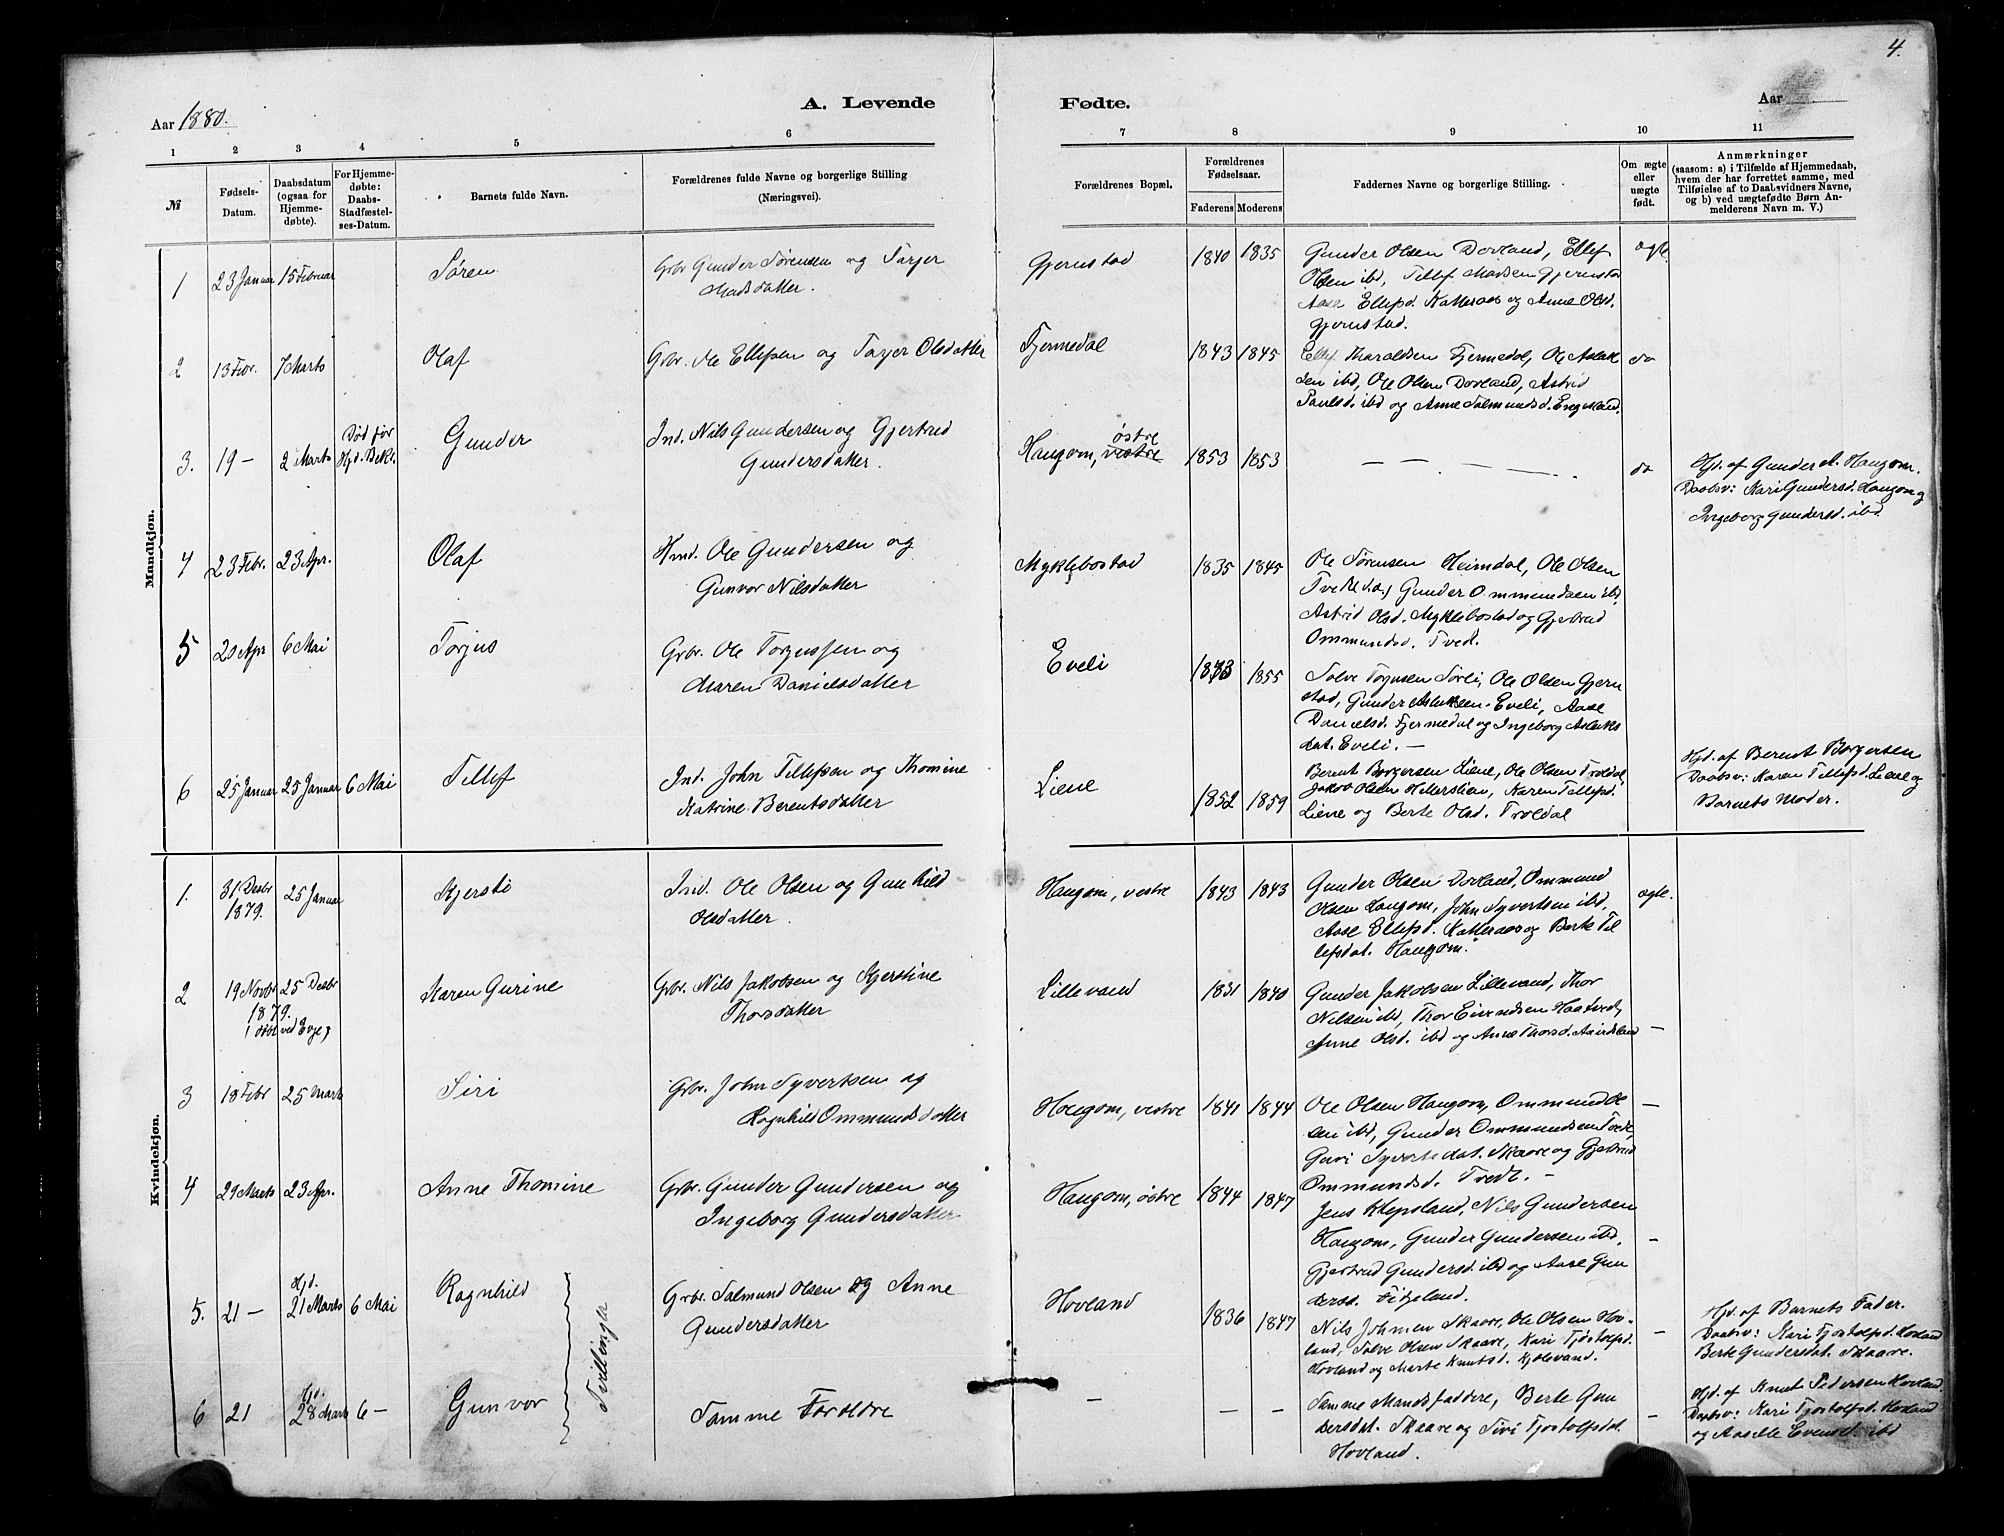 4.
A. Levende Fødte.
Aar 1880.
Aar
1 2 3 4 5 6 7 8 9 10 11
№
Fødsels-Datum.
Daabsdatum (ogsaa for Hjemmedøbte).
For Hjemmedøbte: Daabs-Stadfæstelses-Datum.
Barnets fulde Navn.
Forældrenes fulde Navne og borgerlige Stilling
(Næringsvei).
Forældrenes Bopæl.
Forældrenes Fødselsaar.
Faderens Moderens
Faddernes Navne og borgerlige Stilling.
Om ægte eller uægte født.
Anmærkninger
(saasom: a) i Tilfælde af Hjemmedaab,
hvem der har forrettet samme, med
Tilføielse af to Daabsvidners Navne,
og b) ved uægtefødte Børn Anmelderens Navn m. V.)
Mandkjøn.
1 23 Januar 15 Februar Søren Grbr Gunder Sørensen og Tarjer
Madsdatter. Gjerustad 1840 1835 Gunder Olsen Dovland, Ellef
Olsen ibd, Tellef Madsen Gjerustad
Aase Ellefsd. Katteraas og Anne Olsd.
Gjerustad. ægte
2 13 Febr. 7 Marts Olaf Grbr. Ole Ellefsen og Tarjer Olsdatter Fjermedal 1843 1845 Ellef Tharaldsen Fjermedal, Ole Aslak
sen ibd, Ole Olsen Dovland, Astrid
Paulsd. ibd og Anne Salmundsd. Engesland. do
3. 19 – 2 Marts Død før
Hjd. Bekr. Gunder Ind. Nils Gundersen og Gjertrud
Gundersdatter. Haugom, vestre østre 1853 1853 – – – – do Hjd. af Gunder A. Haugom.
Daabsv: Kari Gundersd. Haugom og
Ingeborg Gundersd. ibd.
4 23 Febr. 23 Apr. Olaf Hmd. Ole Gundersen og
Gunvor Nilsdatter Myklebostad 1835 1845 Ole Sørensen Heimdal, Ole Olsen
Tvedt Gunder Ommundsen ibd,
Astrid Olsd. Myklebostad og Gjertrud
Ommundsd. Tvedt.
5 20 Apr 6 Mai Torjus Grbr. Ole Torjussen og
Maren Danielsdatter Eveli 1843 1855 Salve Torjusen Sørli, Ole Olsen Gjeru
stad, Gunder Aslaksen Eveli, Aase
Danielsd. Fjermedal og Ingeborg Aslaks
dat. Eveli. –
6 25 Januar 25 Januar 6 Mai Tellef Ind. John Tellefsen og Thomine
Katrine Berentsdatter Liene 1852 1859 Berent Borgersen Liene, Ole Olsen Troldal
Jakob Olsen Hillerslien, Karen Tellefsd.
Liene og Berte Olsd. Troldal Hjd. af Berent Borgersen
Daabsv: Karen Tellefsd. Liene og
Barnets Moder.
Kvindekjøn.
1. 31 Decbr
1879. 25 Januar Kjersti Ind. Ole Olsen og Gunhild
Olsdatter. Haugom, vestre 1843 1843 Gunder Olsen Dovland, Ommund
Olsen Haugom, John Syvertsen ibd,
Aase Ellefsd. Katteraas og Berte Til
lefsdat. Haugom. ægte.
2 19 Novbr 25 Decbr
1879.
døbt ved Evje Karen Gurine Grbr. Nils Jakobsen og Kjerstine
Thorsdatter Lillevand 1831 1840 Gunder Jakobsen Lillevand, Thor
Nilsen ibd, Thor Eivindsen Haatvedt,
Anne Olsd. ibd og Anne Thorsd. –
3 18 Febr 25 Marts Siri Grbr. John Syvertsen og
Ragnhild Ommundsdatter Haugom, vestre 1841 1844 Ole Olsen Haugom, Ommund Ol
sen ibd, Gunder Ommundsen Tvedt,
Guri Syvertsdat. Skaare og Gjertrud
Ommundsd. Tvedt. – –
4 29 Marts 23 Apr. Anne Thomine Grbr. Gunder Gundersen og
Ingeborg Gundersdatter Haugom, østre 1844 1847 Jens Klepsland, Nils Gundersen
Haugom, Gunder Gundersen ibd,
Gjertrud Gundersd. ibd og Aase Gun
dersd. Fidjeland. –
5. 21 – Hjd.
21 Marts 6 Mai Ragnhild Tvillinger Grbr. Salmund Olsen og Anne
Gundersdatter Hovland 1836 1847 Nils Johnsen Skaare, Ole Olsen Hov-
land, Salve Olsen Skaare, Kari Tjostolfsd.
Hovland og Marte Knutsd. Kjolevand. – Hjd. af Barnets Fader.
Daabsv: Kari Tjostolfsd. Hovland
Berte Gundersdat. Skaare.
6 21 Hjd.
28 Marts 6 – Gunvor Samme Foroldre – – – Samme Mandsfaddere, Berte Gun
dersdat. Skaare og Siri Tjostolfsdat.
Hovland. – Hjd. af Knut Pedersen Hovland.
Daabsv: Kari Tjostolfsd. Hovland
og Aasille Evensd. ibd